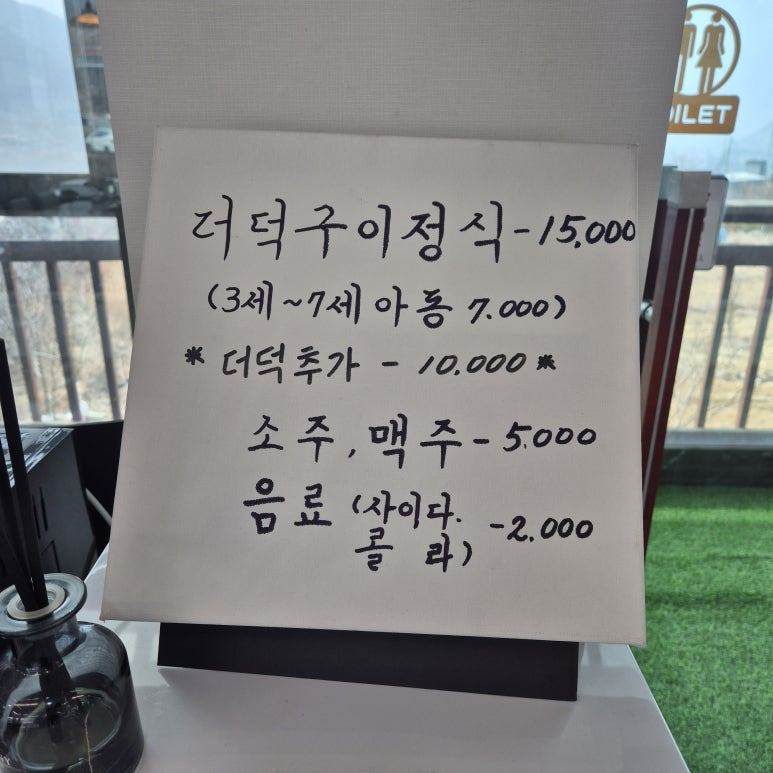 TOILET
더덕구이정식-15,000
(3세~7세 아동 7.000)
* 더덕추가 - 10.000 *
소주, 맥주 - 5.000
음료 (사이다. 콜라) -2.000